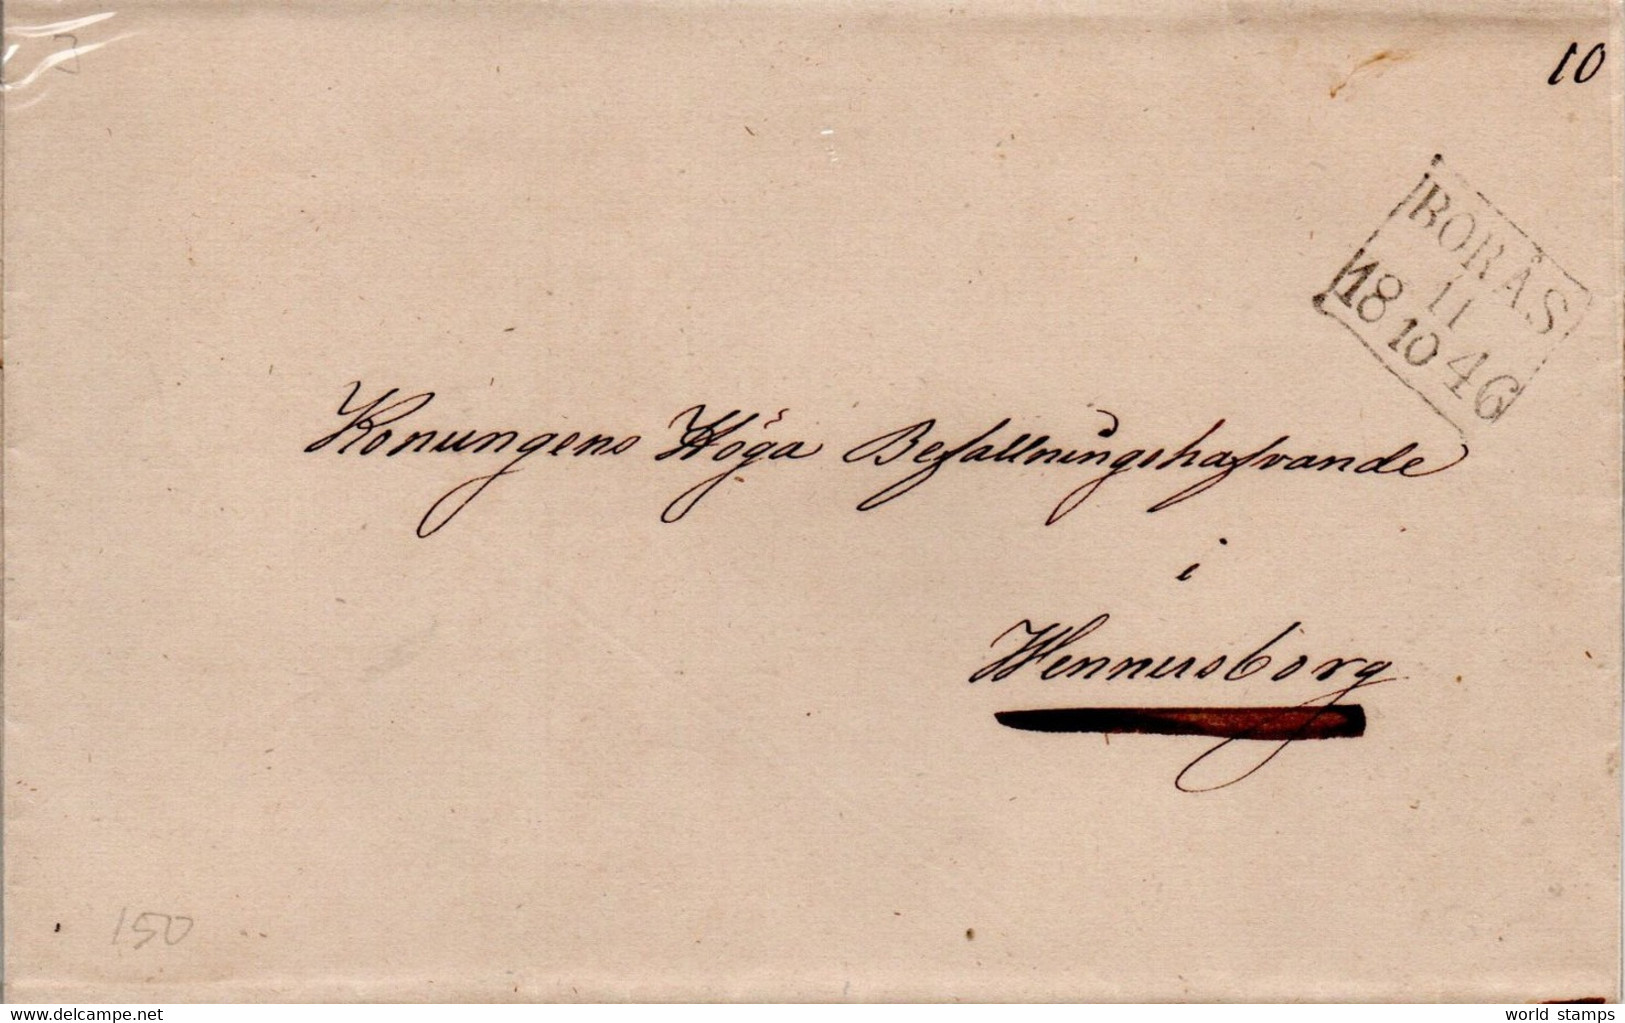 10
BORÅS
11
18 10 46
Konungens Höga Befallningshafvande
i
Wennersborg
150
delcampe.net
world stamps